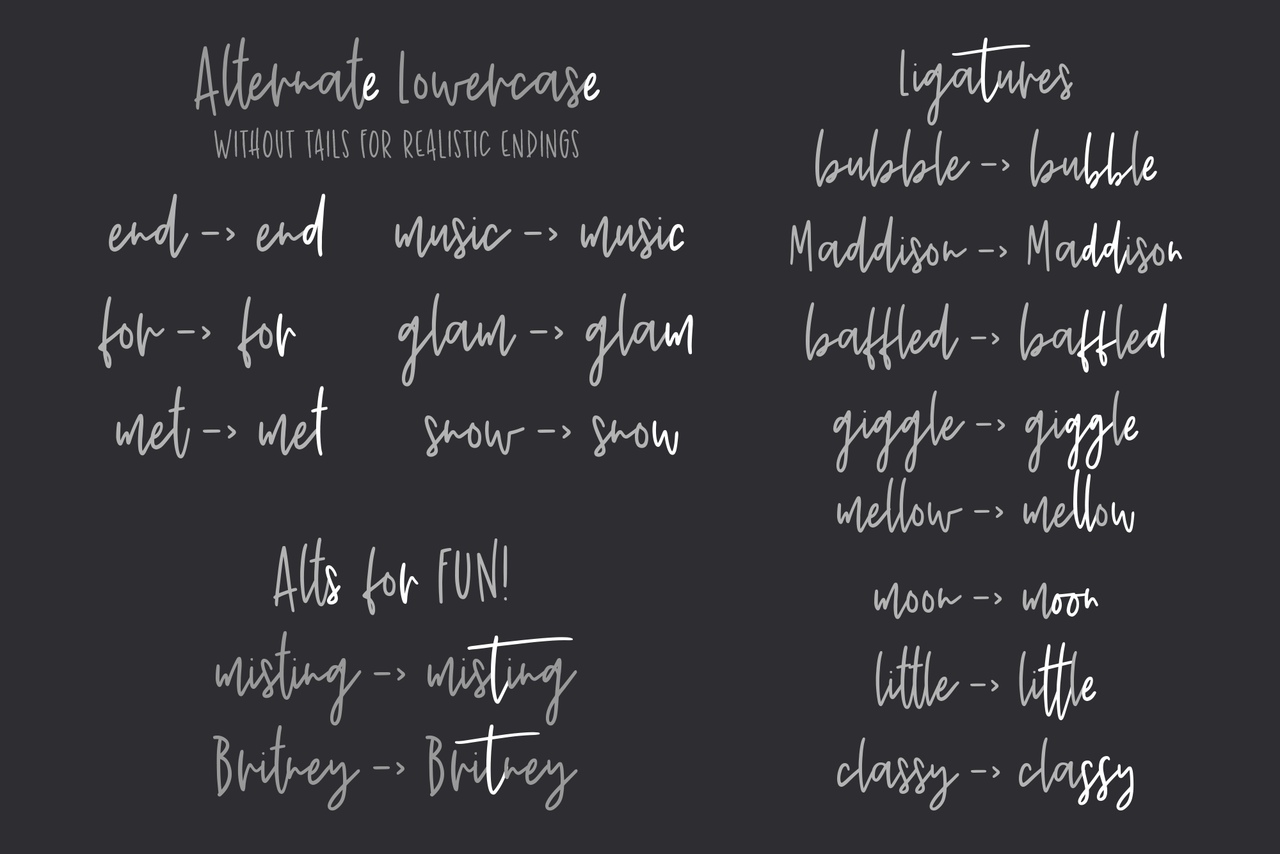 Alternate Lowercase
WITHOUT TAILS FOR REALISTIC ENDINGS
end -> end
music -> music
for -> for
glam -> glam
met -> met
snow -> snow
Alts for FUN!
misting -> misting
Britney -> Britney
Ligatures
bubble -> bubble
Maddison -> Maddison
baffled -> baffled
giggle -> giggle
mellow -> mellow
moon -> moon
little -> little
classy -> classy